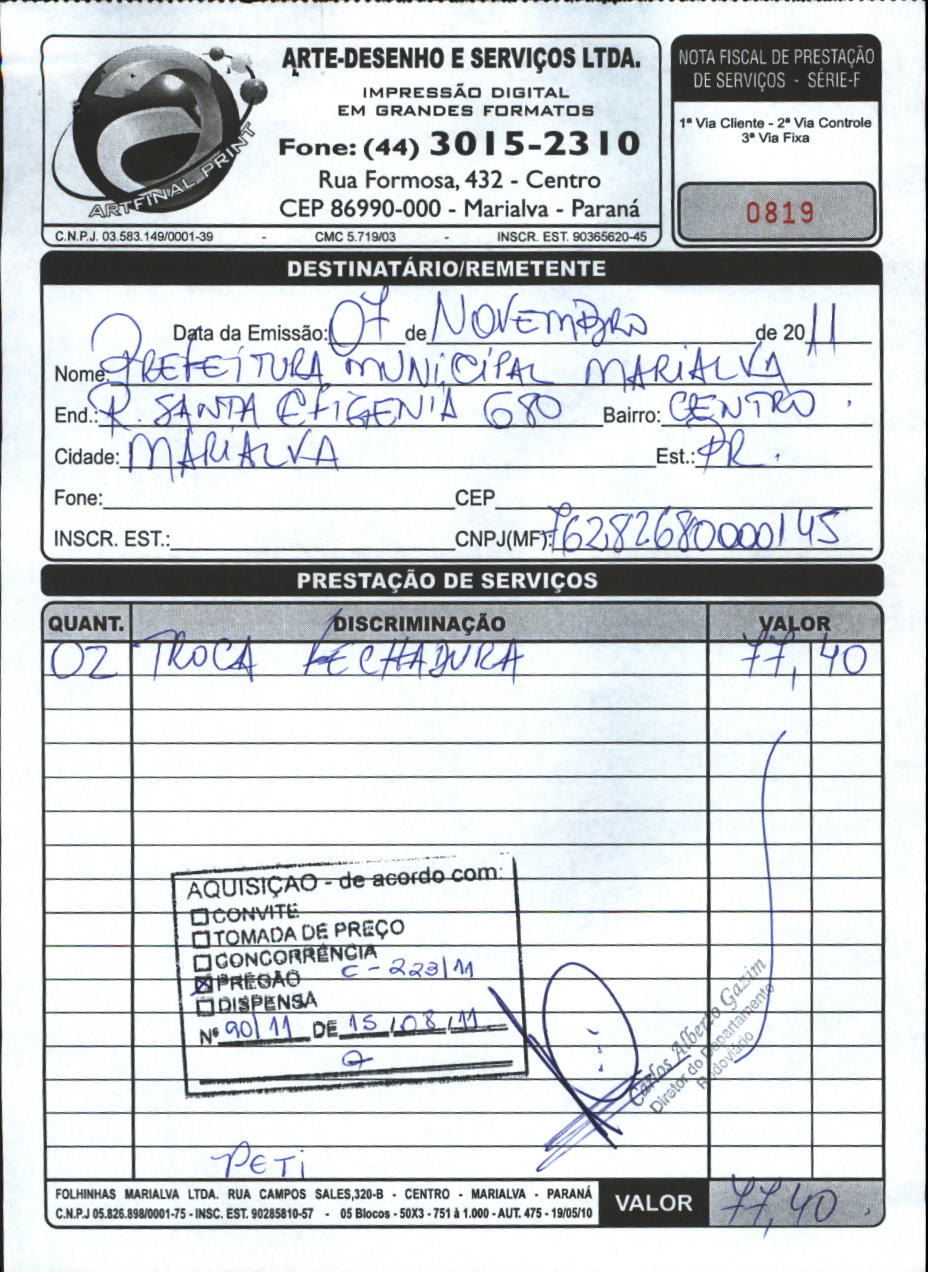 ARTE-DESENHO E SERVIÇOS LTDA.
IMPRESSÃO DIGITAL
EM GRANDES FORMATOS
Fone: (44) 3015-2310
Rua Formosa, 432 - Centro
CEP 86990-000 - Marialva - Paraná
ARTFINAL PRINT
C.N.P.J. 03.583.149/0001-39 - CMC 5.719/03 - INSCR. EST. 90365620-45
NOTA FISCAL DE PRESTAÇÃO
DE SERVIÇOS - SÉRIE-F
1ª Via Cliente - 2ª Via Controle
3ª Via Fixa
0819
DESTINATÁRIO/REMETENTE
Data da Emissão: 07 de NOVEMBRO de 2011
Nome: PREFEITURA MUNICIPAL MARIALVA
End.: R. SANTA EFIGENIA 680 Bairro: CENTRO.
Cidade: MARIALVA Est.: PR.
Fone: CEP
INSCR. EST.: CNPJ(MF): 76282680000145
PRESTAÇÃO DE SERVIÇOS
QUANT. DISCRIMINAÇÃO VALOR
02 TROCA FECHADURA 77,40
AQUISIÇÃO - de acordo com:
CONVITE
TOMADA DE PREÇO
CONCORRÊNCIA
PREGÃO C-223/11
DISPENSA
Nº 90/11 DE 15/08/11
Carlos Alberto Gazim
Diretor do Departamento
Rodoviário
PETI
FOLHINHAS MARIALVA LTDA. RUA CAMPOS SALES,320-B - CENTRO - MARIALVA - PARANÁ
C.N.P.J 05.826.898/0001-75 - INSC. EST. 90285810-57 - 05 Blocos - 50X3 - 751 à 1.000 - AUT. 475 - 19/05/10
VALOR 77,40.